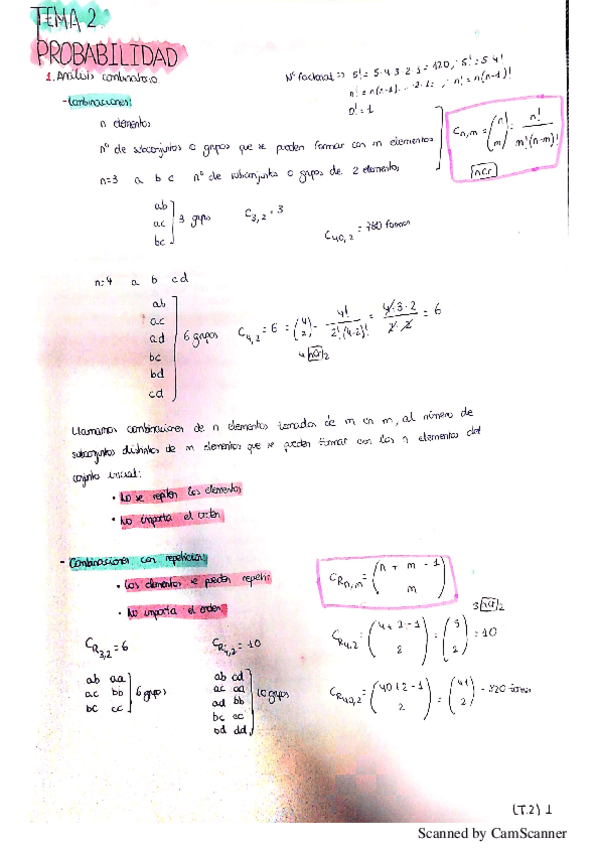 TEMA 2
PROBABILIDAD
1. Análisis combinatorio
Nº factorial => 5! = 5·4·3·2·1 = 120, 5! = 5·4!
n! = n(n-1)...·2·1; n! = n(n-1)!
0! = 1
- Combinaciones:
n elementos
nº de subconjuntos o grupos que se pueden formar con m elementos
C n,m = (n m) = n! / m!(n-m)!
nCr
n=3 a b c nº de subconjuntos o grupos de 2 elementos
ab
ac
bc
3 grupos
C3,2 = 3
C40,2 = 780 formas
n=4 a b c d
ab
ac
ad
bc
bd
cd
6 grupos
C4,2 = 6 = (4 2) = 4! / 2!(4-2)! = 4·3·2 / 2·2 = 6
4 nCr 2
Llamamos combinaciones de n elementos tomados de m en m, al número de
subconjuntos distintos de m elementos que se pueden formar con los n elementos del
conjunto inicial:
• No se repiten los elementos
• No importa el orden
- Combinaciones con repetición:
• Los elementos se pueden repetir
• No importa el orden
CR n,m = (n + m - 1 m)
CR3,2 = 6
ab aa
ac bb
bc cc
6 grupos
CR4,2 = 10
ab cd
ac aa
ad bb
bc cc
bd dd
10 grupos
5 nCr 2
CR4,2 = (4+2-1 2) = (5 2) = 10
CR40,2 = (40+2-1 2) = (41 2) = 820 formas
(T.2) 1
Scanned by CamScanner